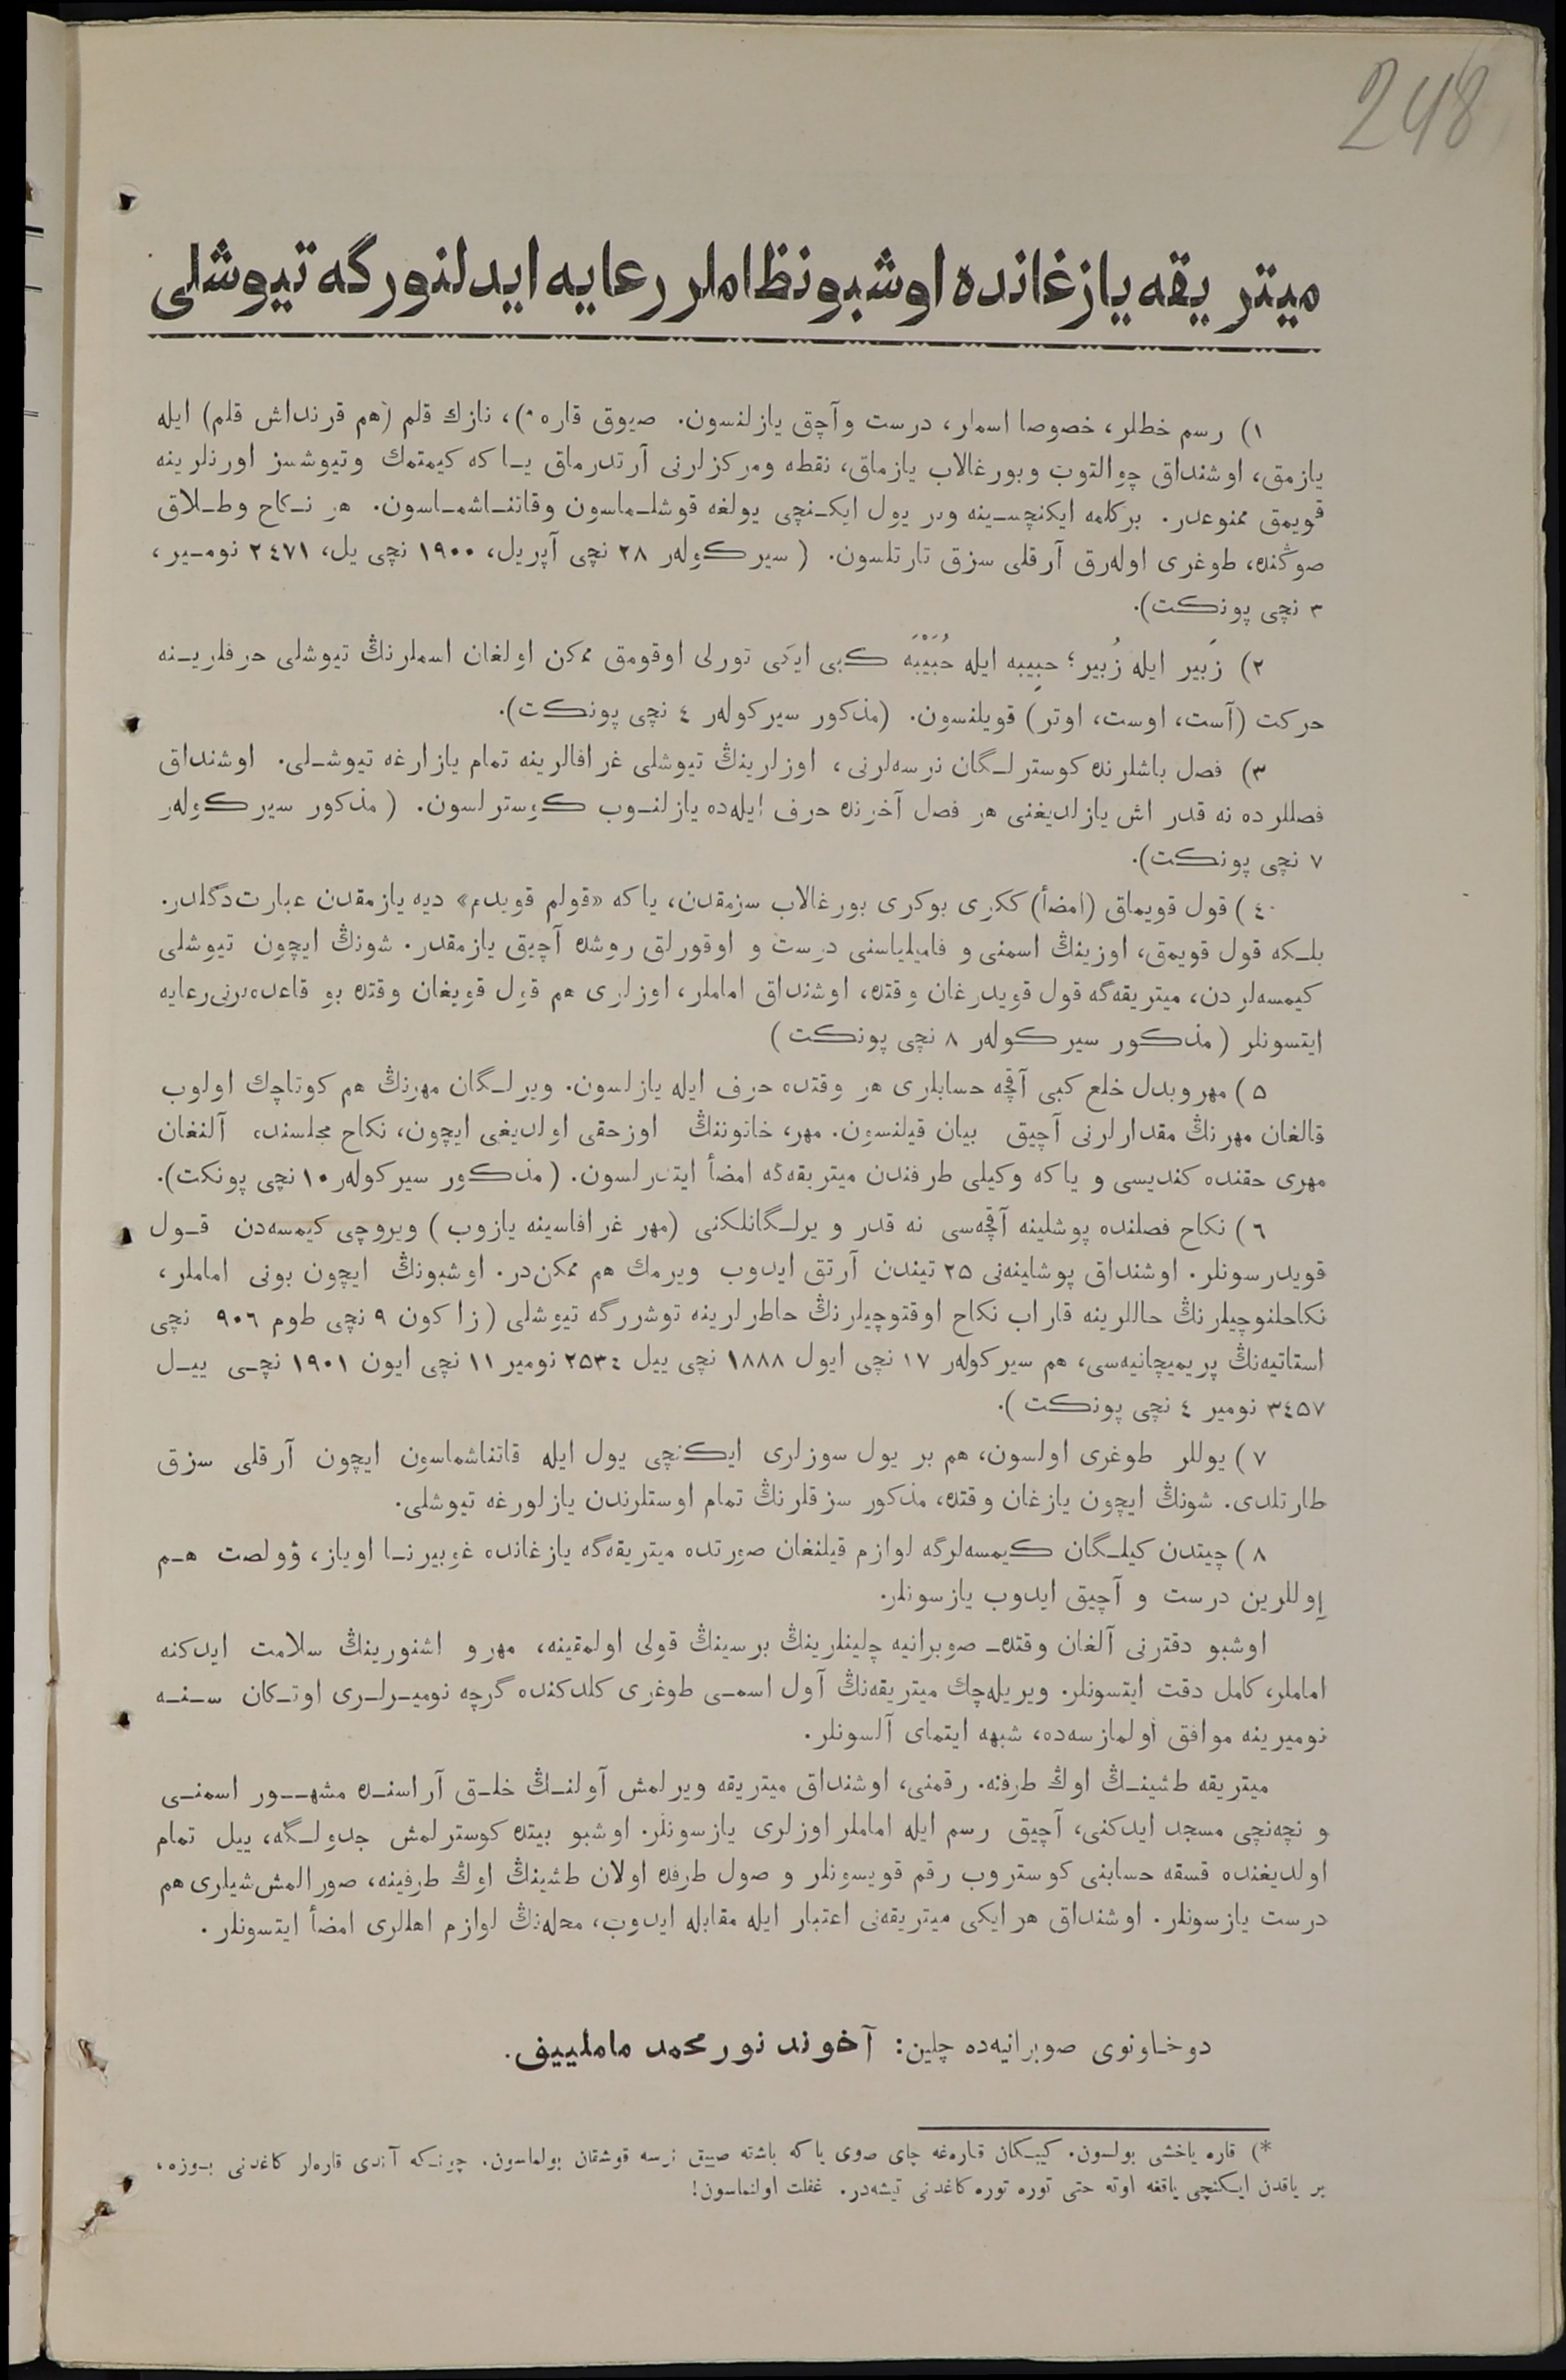 248
ميتريقه يازغانده اوشبو نظاملر رعايه ايدلنورگه تيوشلى
١) رسم خطلر، خصوصا اسملر، درست وآچق يازلنسون. صيوق قاره *)، نازك قلم (هم قرنداش قلم) ايله
يازمق، اوشنداق چوالتوب وبورغالاب يازماق، نقطه ومركزلرنى آرتدرماق يــا كه كيمتمك وتيوشسز اورنلرينه
قويمق ممنوعدر. بركلمه ايكنچســينه وبر يول ايكـنچى يولغه قوشلــماسون وقاتنــاشمــاسون. هر نــكاح وطــلاق
صوڭنده، طوغرى اولەرق آرقلى سزق تارتلسون. (سيركولەر ٢٨ نچى آپريل، ١٩٠٠ نچى يل، ٢٤٧١ نومــير،
٣ نچى پونكت).
٢) زَبير ايله زُبير؛ حبِيبه ايله حُبَيْبَه كبى ايكى تورلى اوقومق ممكن اولغان اسملرنڭ تيوشلى حرفلريــنه
حركت (آست، اوست، اوتر) قويلنسون. (مذكور سيركولەر ٤ نچى پونكت).
٣) فصل باشلرنده كوسترلــگان نرسەلرنى، اوزلرينڭ تيوشلى غرافالرينه تمام يازارغه تيوشــلى. اوشنداق
فصللرده نه قدر اش يازلديغنى هر فصل آخرنده حرف ايلەده يازلنــوب كوسترلسون. (مذكور سيركولەر
٧ نچى پونكت).
٤) قول قويماق (امضأ) ككرى بوكرى بورغالاب سزمقدن، ياكه «قولم قويدم» ديه يازمقدن عبارت دگلدر.
بلــكه قول قويمق، اوزينڭ اسمنى و فاميلياسنى درست و اوقورلق روشده آچيق يازمقدر. شونڭ ايچون تيوشلى
كيمسەلردن، ميتريقەگه قول قويدرغان وقتده، اوشنداق اماملر، اوزلرى هم قول قويغان وقتده بو قاعدەلرنى رعايه
ايتسونلر (مذكور سيركولەر ٨ نچى پونكت)
٥) مهر وبدل خلع كبى آقچه حسابلرى هر وقتده حرف ايله يازلسون. ويرلــگان مهرنڭ هم كوتاچك اولوب
قالغان مهرنڭ مقدارلرنى آچيق بيان قيلنسون. مهر، خاتوننڭ اوزحقى اولديغى ايچون، نكاح مجلسنده آلنغان
مهرى حقنده كنديسى و ياكه وكيلى طرفندن ميتريقەگه امضأ ايتدرلسون. (مذكور سيركولەر ١٠ نچى پونكت).
٦) نكاح فصلنده پوشلينه آقچەسى نه قدر ويرلــگانلكنى (مهر غرافاسينه يازوب) ويروچى كيمسەدن قــول
قويدرسونلر. اوشنداق پوشلينەنى ٢٥ تيندن آرتق ايدوب ويرمك هم ممكن در. اوشبونڭ ايچون بونى اماملر،
نكاحلنوچيلرنڭ حاللرينه قاراب نكاح اوقتوچيلرنڭ خاطرلرينه توشررگه تيوشلى (زاكون ٩ نچى طوم ٩٠٦ نچى
استاتيەنڭ پريميچانيەسى، هم سيركولەر ١٧ نچى ايول ١٨٨٨ نچى ييل ٢٥٣٤ نومير ١١ نچى ايون ١٩٠١ نچــى ييــل
٣٤٥٧ نومير ٤ نچى پونكت).
٧) يوللر طوغرى اولسون، هم بر يول سوزلرى ايكنچى يول ايله قاتناشماسون ايچون آرقلى سزق
طارتلدى. شونڭ ايچون يازغان وقتده، مذكور سزقلرنڭ تمام اوستلرندن يازلورغه تيوشلى.
٨) چيتدن كيلــگان كيمسەلرگه لوازم قيلنغان صورتده ميتريقەگه يازغانده غوبيرنــا اوياز، ۋولصت هــم
اوللرين درست و آچيق ايدوب يازسونلر.
اوشبو دفترنى آلغان وقتده صوبرانيه چلينلرينڭ برسينڭ قولى اولمقينه، مهر و اشنورينڭ سلامت ايدكنه
اماملر، كامل دقت ايتسونلر. ويريلەچك ميتريقەنڭ آول اسمــى طوغرى كلدكنده گرچه نوميــرلــرى اوتــكان ســنــه
نوميرينه موافق اولمازسەده، شبهه ايتماى آلسونلر.
ميتريقه طشينــڭ اوڭ طرفنه رقمنى، اوشنداق ميتريقه ويرلمش آولنــڭ خلــق آراسنــده مشهـــور اسمنــى
و نچەنچى مسجد ايدكنى، آچيق رسم ايله اماملر اوزلرى يازسونلر. اوشبو بيتده كوسترلمش جدولــگه، ييل تمام
اولديغنده قسقه حسابنى كوستروب رقم قويسونلر و صول طرفده اولان طشينڭ اوڭ طرفينه، صورالمش شيلرى هم
درست يازسونلر. اوشنداق هر ايكى ميتريقەنى اعتبار ايله مقابله ايدوب، محلەنڭ لوازم اهاللرى امضأ ايتسونلر.
دوخاونوى صوبرانيەده چلين: آخوند نورمحمد ماملييف.
*) قاره ياخشى بولسون. كيبــكان قارەغه چاى صوى ياكه باشقه صييق نرسه قوشقان بولماسون. چونــكه آندى قارەلر كاغدنى بــوزه،
بر ياقدن ايــكنچى ياقغه اوته حتى توره توره كاغدنى تيشەدر. غفلت اولنماسون!